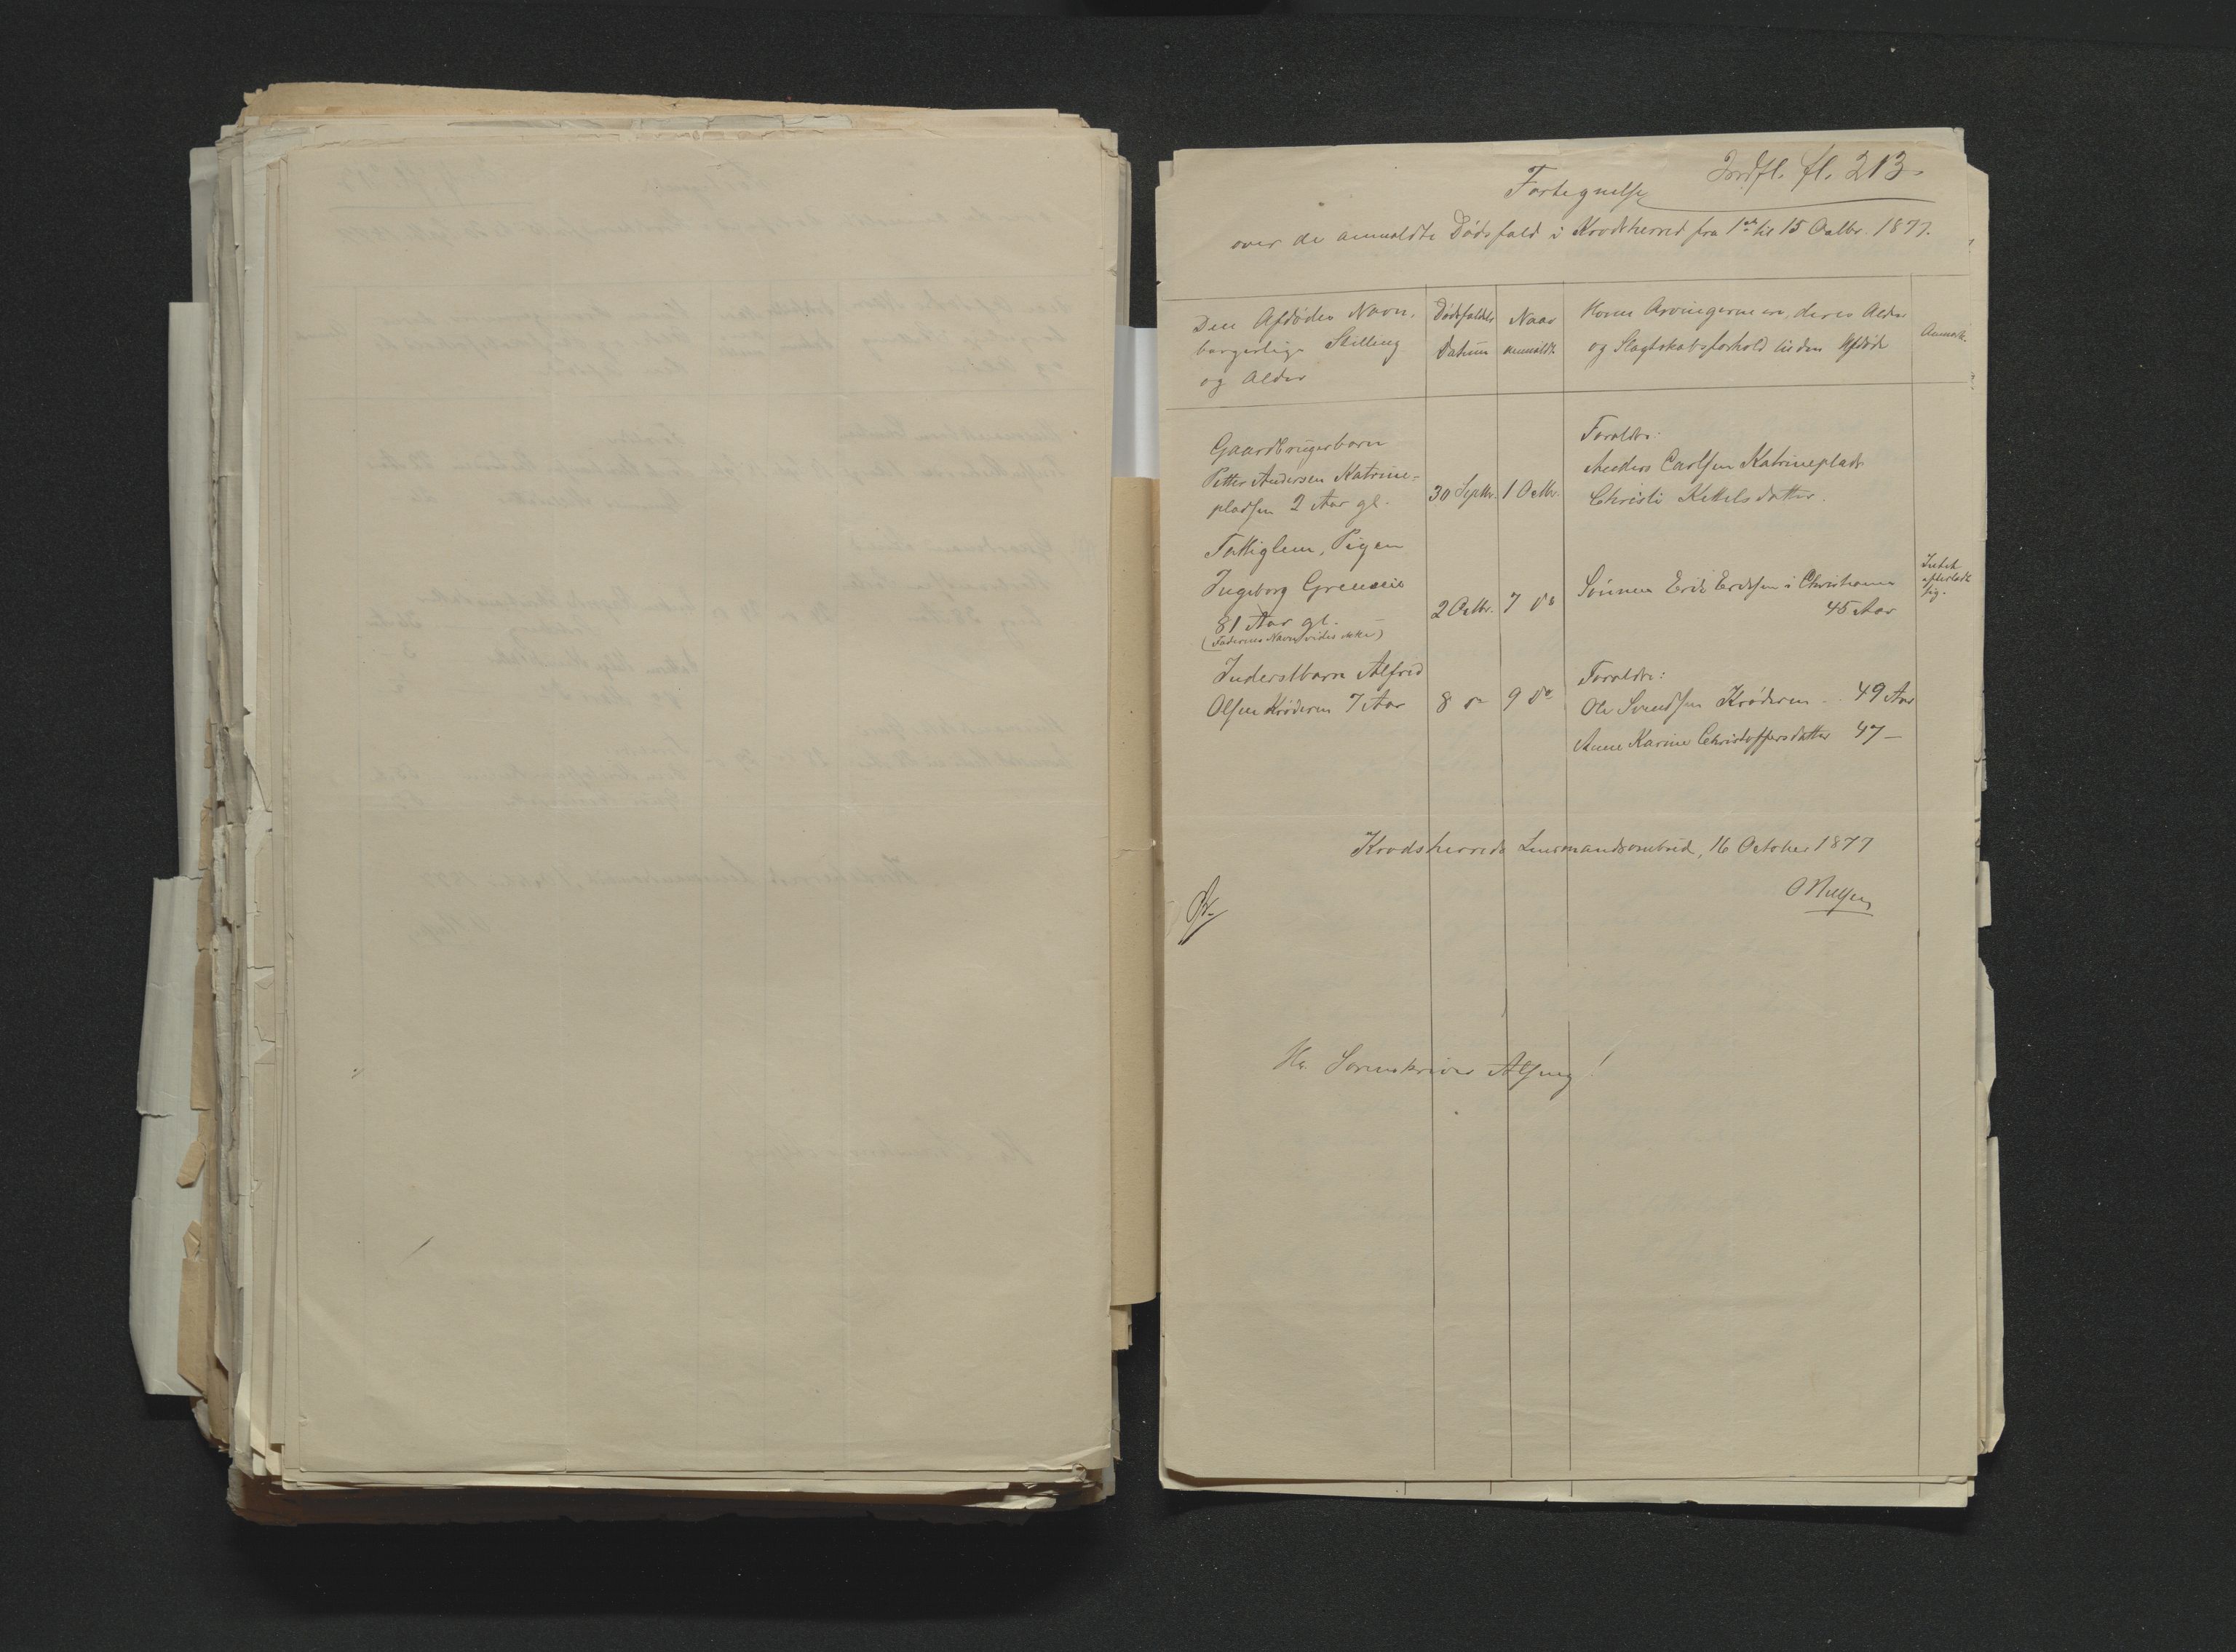 Indfl. fl. 213.
Fortegnelse
over de anmeldte Dødsfald i Krodsherred fra 1ste til 15 Octbr. 1877.
Den Afdødes Navn,
borgerlige Stilling
og Alder
Dødsfaldets
Datum
Naar
anmeldt.
Hvem Arvingerne ere, deres Alder
og Slagtskabsforhold til den Afdøde
Anmærk.
Gaardbrugerbarn
Petter Andersen Katrine-
pladsen 2 Aar gl.
30 Septbr.
1 Octbr.
Forældre:
Anders Carlsen Katrineplads
Christi Kittelsdatter.
Fattiglem, Pigen
Ingeborg Grenseie
81 Aar gl.
(Faderens Navn vides ikke)
2 Octbr.
7 do
Sønnen Erik Eriksen i Christiania
45 Aar
Intet
efterladt
sig.
Inderstbarn Alfred
Olsen Krøderen 7 Aar
8 do
9 do
Forældre:
Ole Svendsen Krøderen 49 Aar
Anne Karine Christoffersdatter 47 —
Krodsherreds Lensmandsombud, 16 October 1877
ONielsen
Hr. Sorenskriver Alsing!